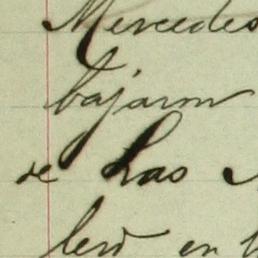 Mercedes
bajaron
de Las
en